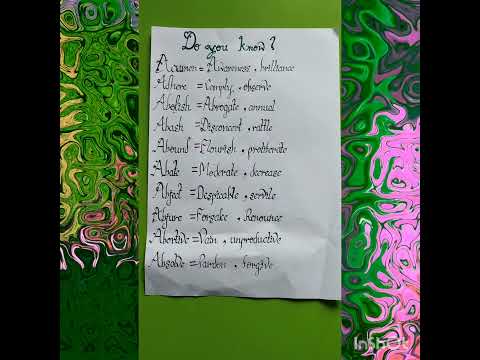 Do you know?
Acumen = Awareness, brilliance
Adhere = Comply, observe
Abolish = Abrogate, annual
Abash = Disconcert, rattle
Abound = Flourish, proliferate
Abate = Moderate, decrease
Abject = Despicable, servile
Abjure = Forsake, Renounce
Abortive = Vain, unproductive
Absolve = Pardon, forgive
InShot